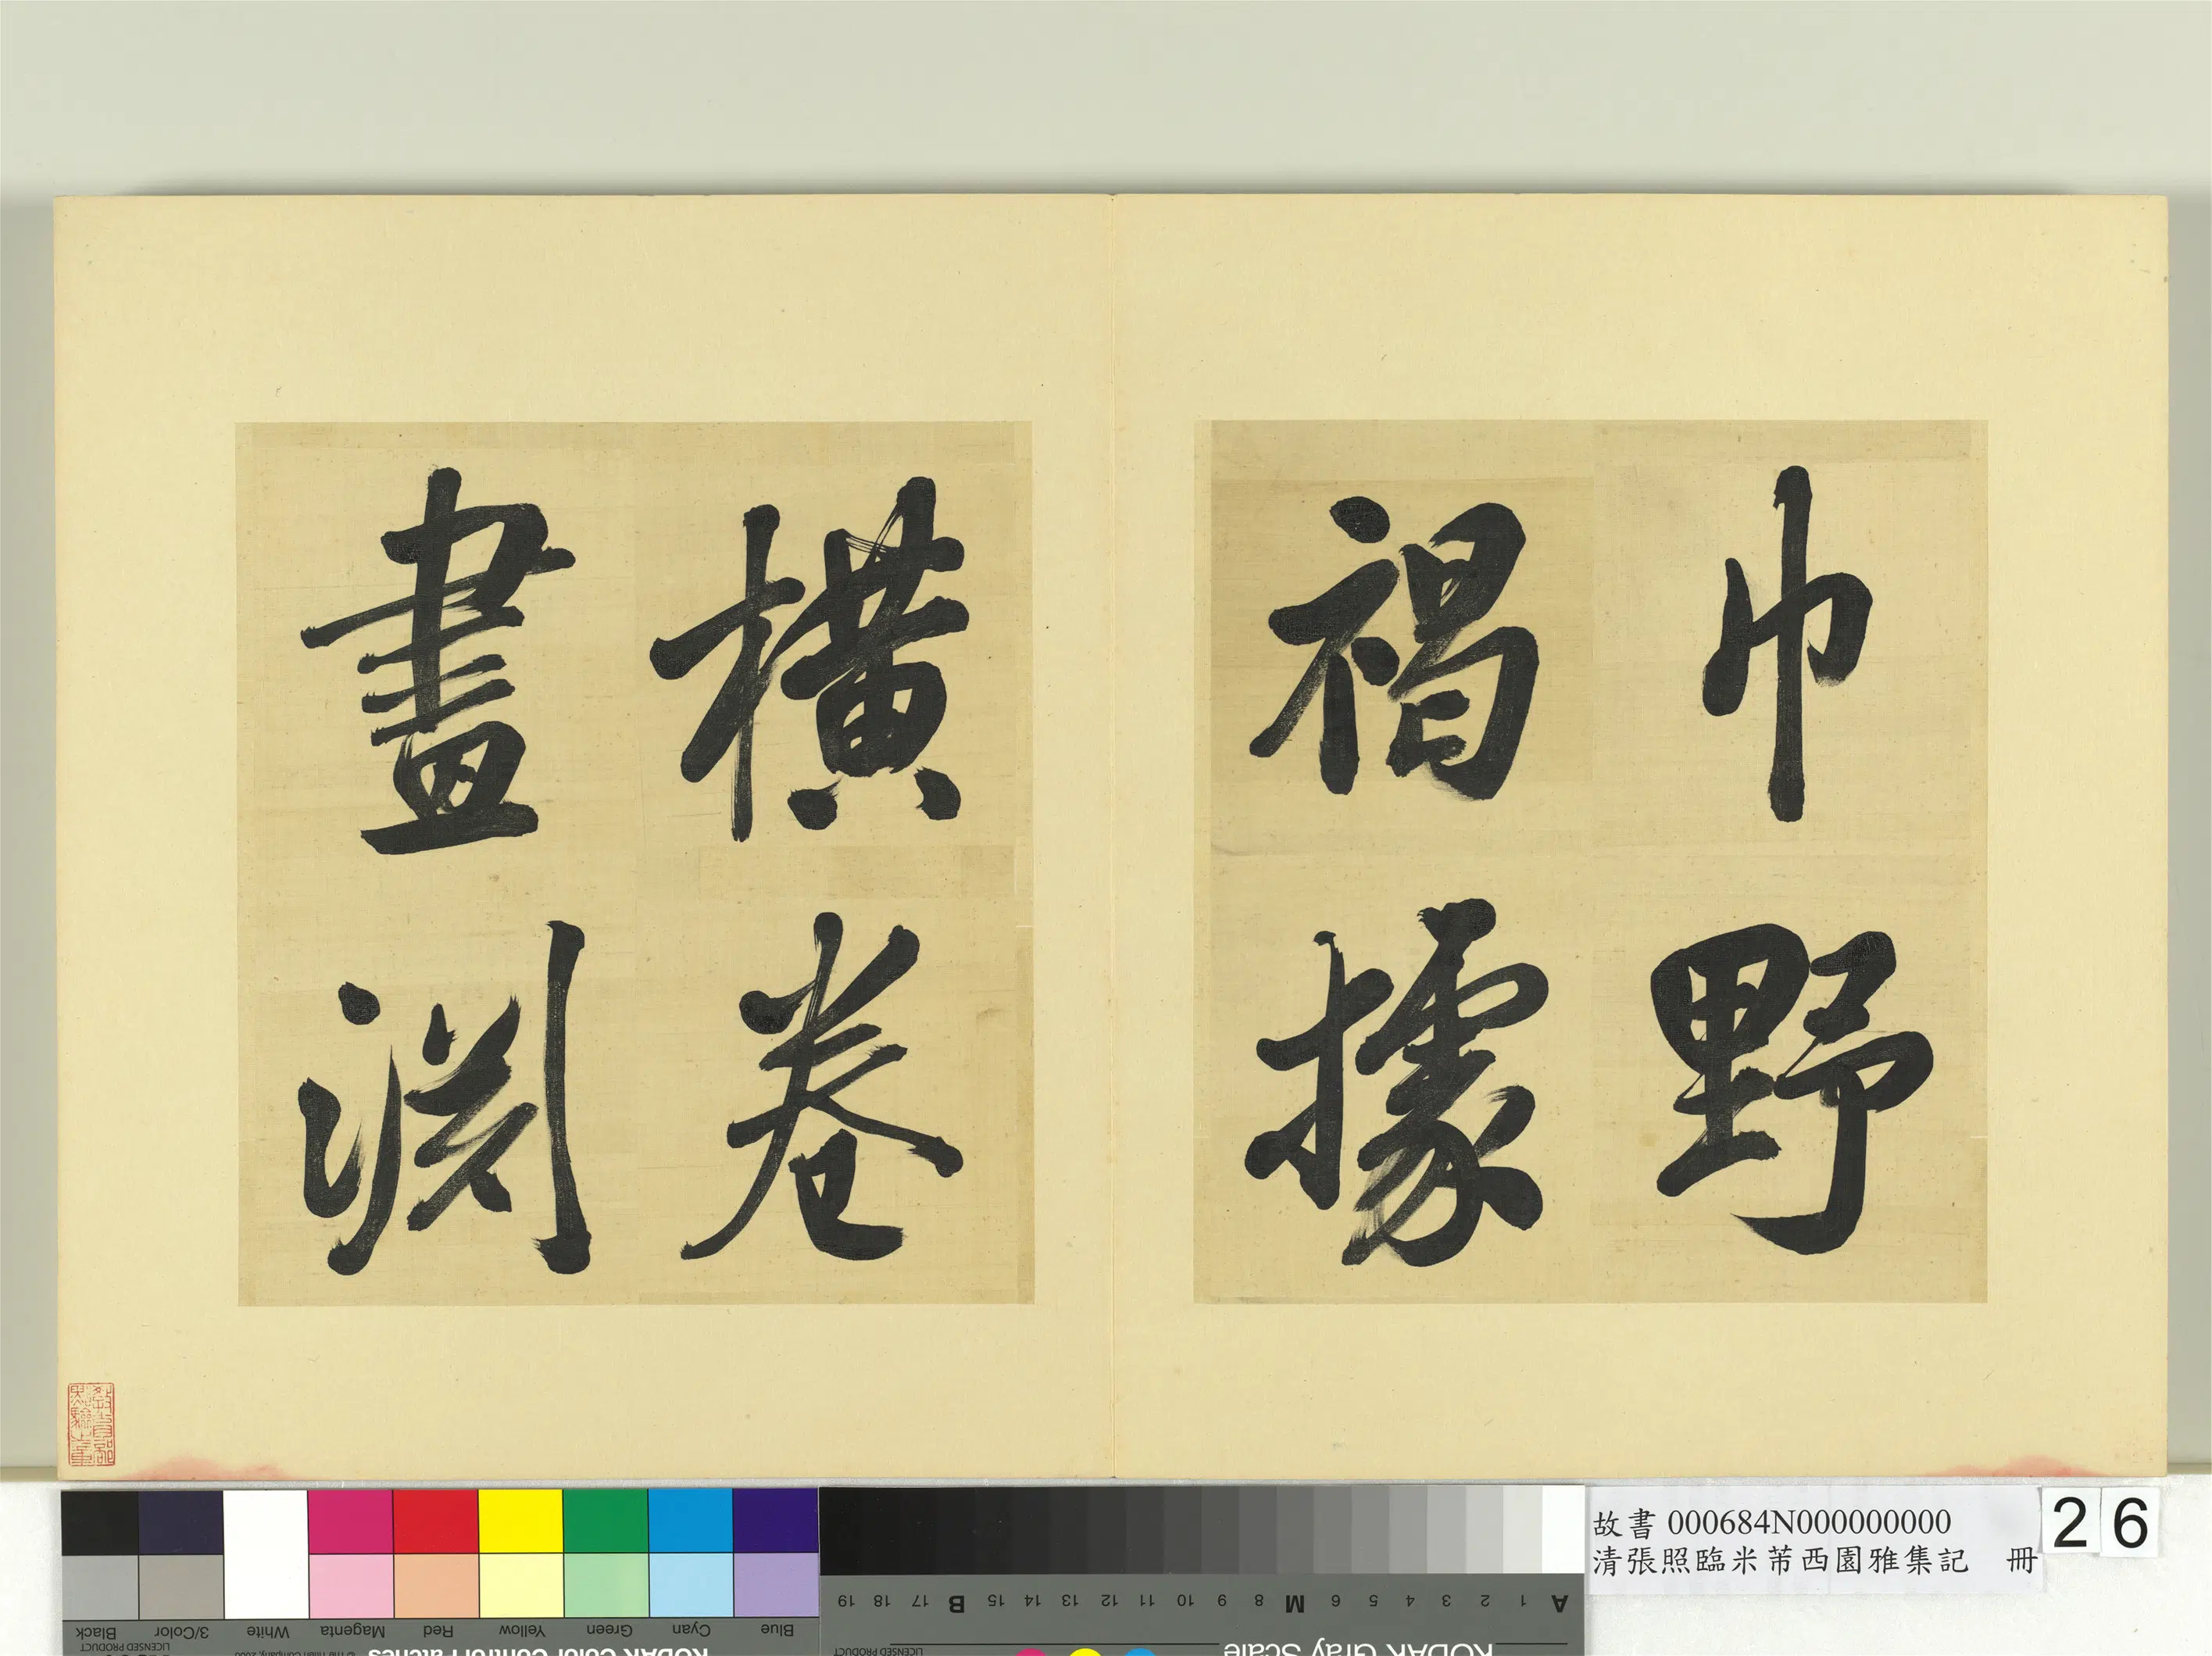 巾野
褐據
橫卷
畫淵
教育部
點驗之章
故書 000684N000000000
清張照臨米芾西園雅集記 冊
26
Black 3/Color White Magenta Red Yellow Green Cyan Blue
LICENSED PRODUCT
KODAK Color Control Patches
© The Tiffen Company, 2000
A 1 2 3 4 5 6 M 8 9 10 11 12 13 14 15 B 17 18 19
KODAK Gray Scale
LICENSED PRODUCT